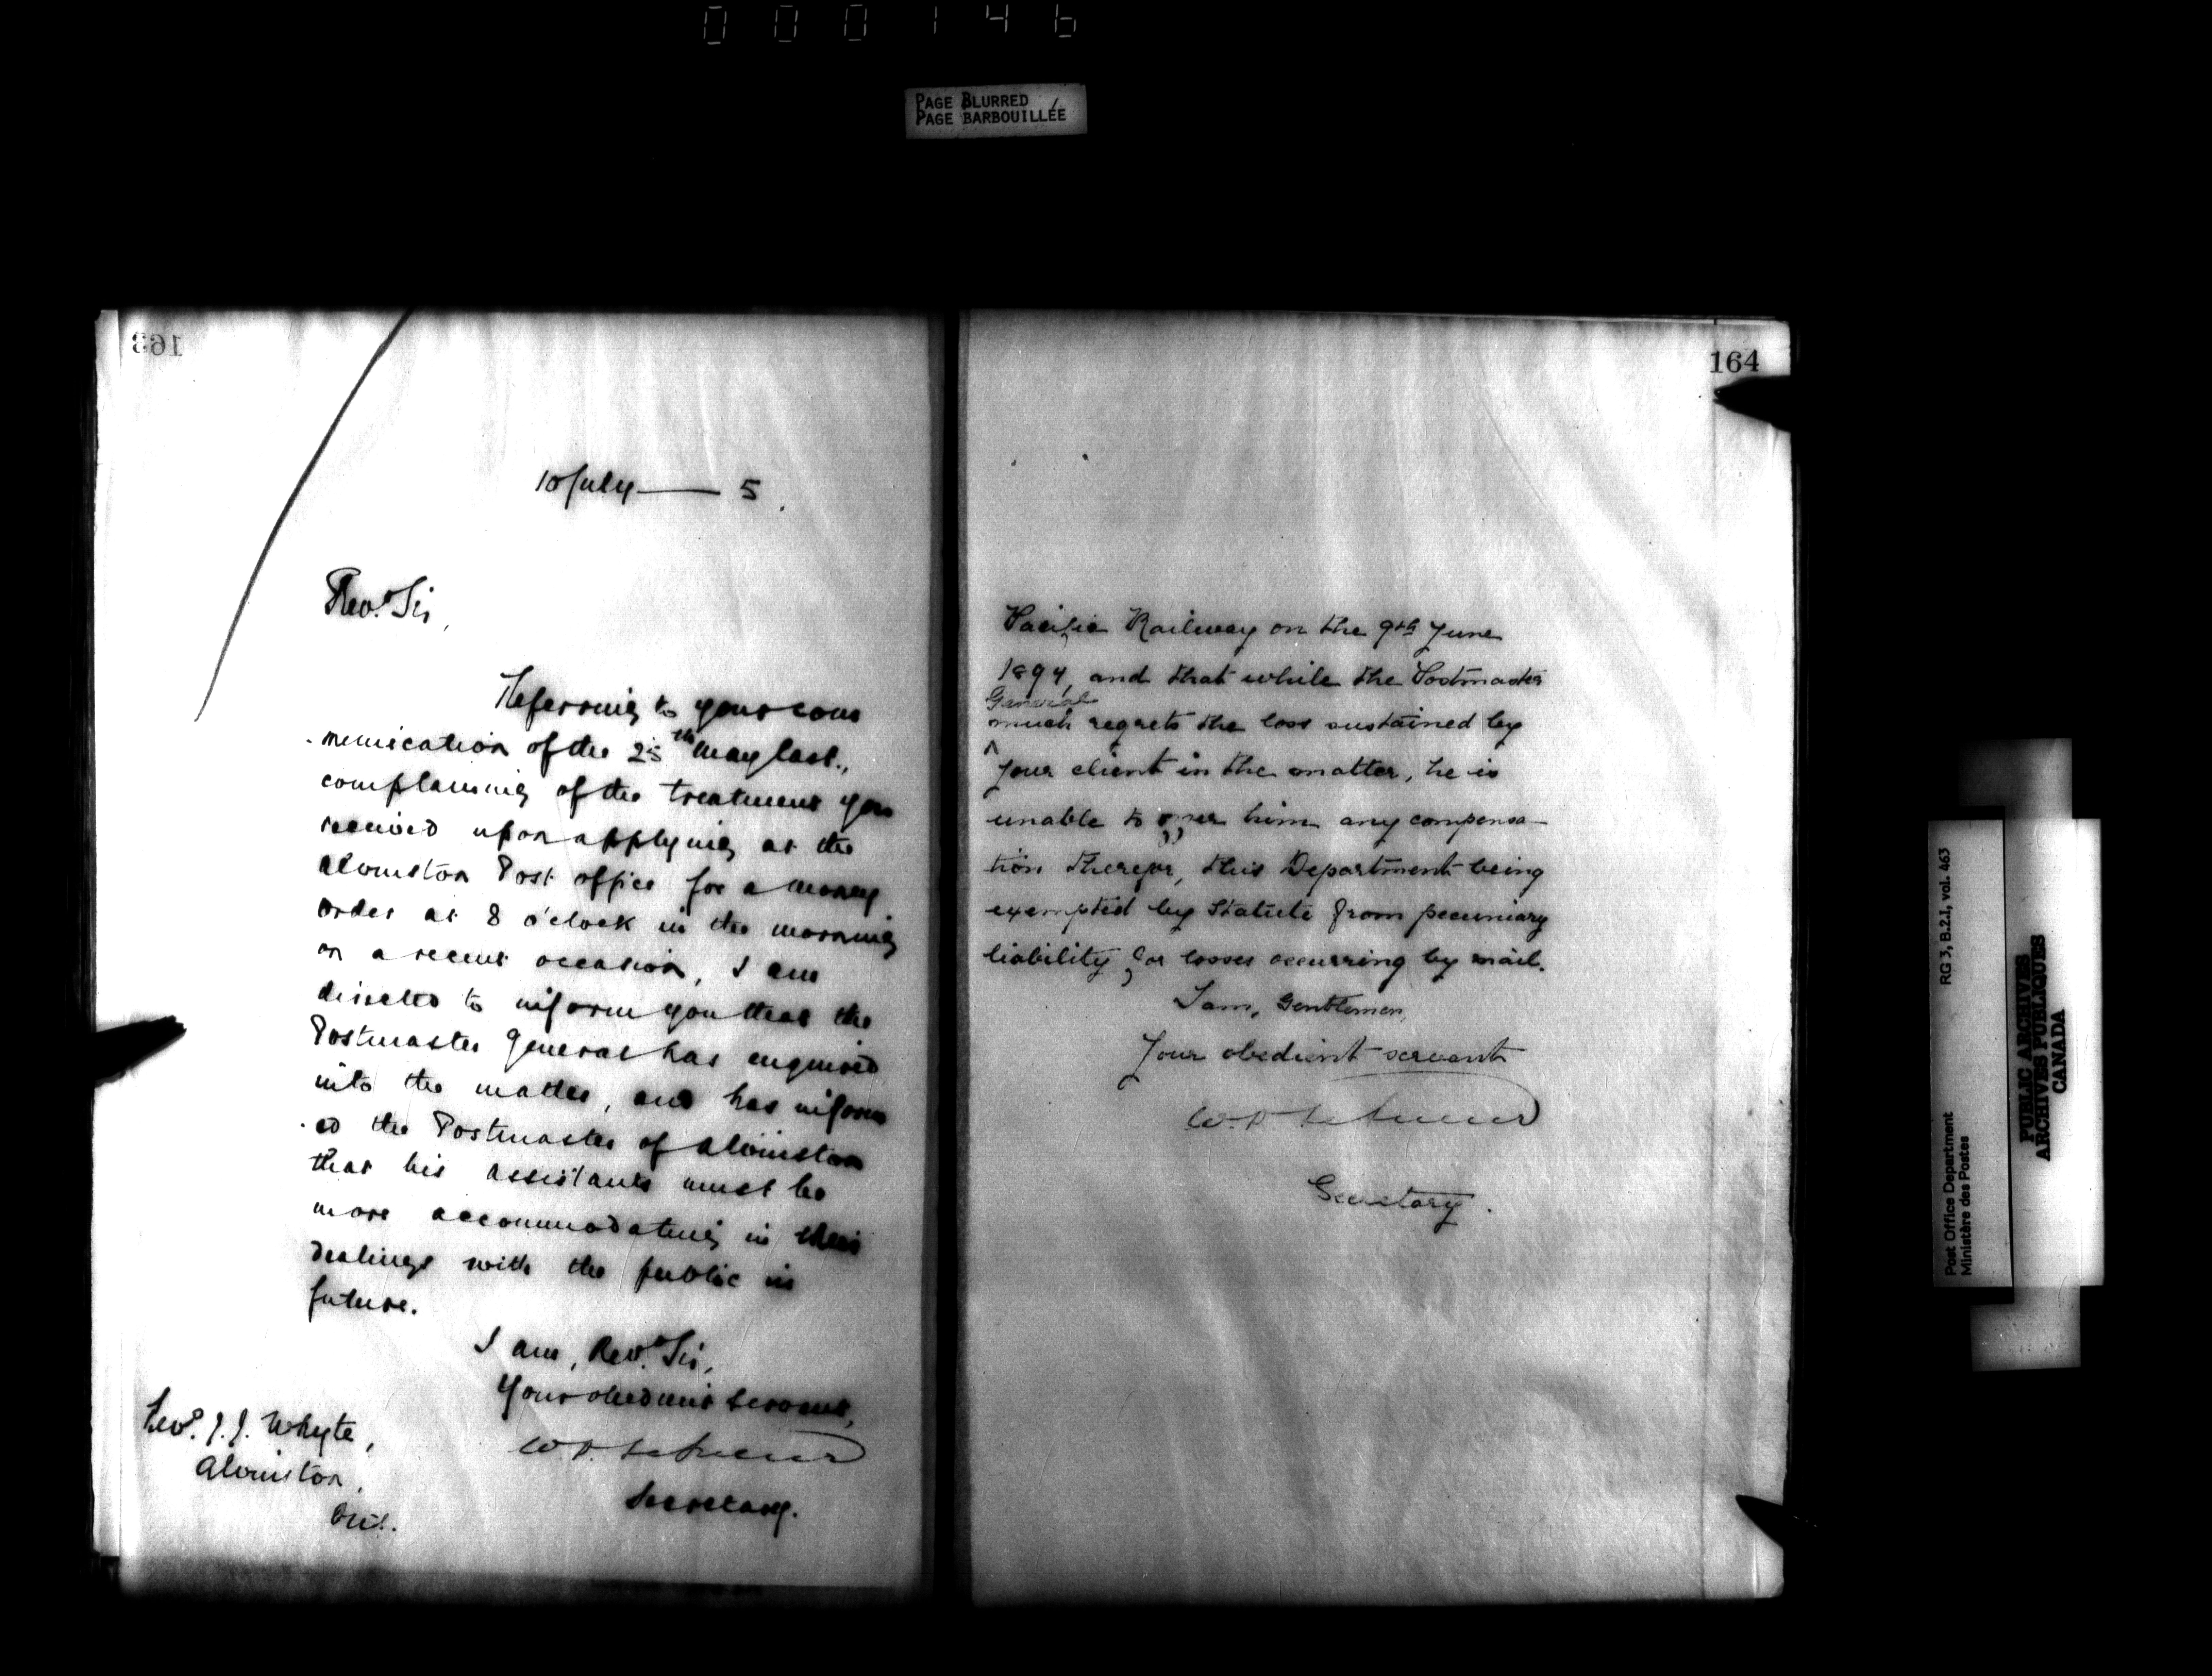 000146
PAGE BLURRED
PAGE BARBOUILLÉE
163
10 July — 5.
Revd. Sir,
Referring to your com
-munication of the 25th May last.,
complaining of the treatment you
received upon applying at the
Alvinston Post office for a money
order at 8 o'clock in the morning
on a recent occasion, I am
directed to inform you that the
Postmaster General has enquired
into the matter, and has inform
-ed the Postmaster of Alvinston
that his assistants must be
more accommodating in their
dealings with the public in
future.
I am, Revd. Sir,
Your obedient servant,
Secretary.
Revd. J. J. Whyte,
Alvinston,
Ont.
164
Pacific Railway on the 9th June
1894, and that while the Postmaster
General
much regrets the loss sustained by
your client in the matter, he is
unable to offer him any compensa-
tion therefor, this Department being
exempted by Statute from pecuniary
liability for losses occurring by mail.
I am, Gentlemen,
Your obedient servant
Secretary.
Post Office Department
Ministère des Postes
RG 3, B.2.1, vol. 463
PUBLIC ARCHIVES
ARCHIVES PUBLIQUES
CANADA